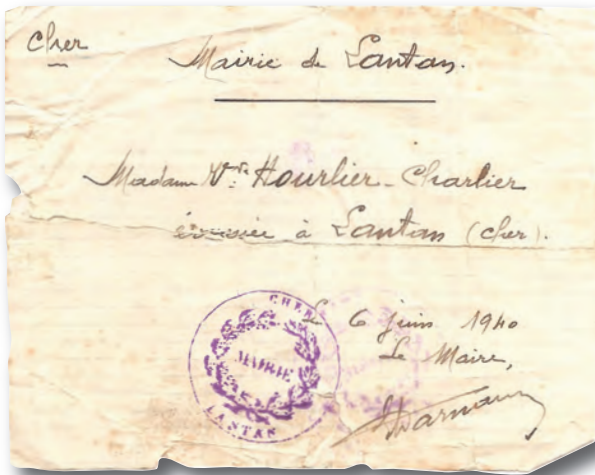 Cher
Mairie de Lantan.
Madame Vve Hourlier-Charlier
à Lantan (Cher).
Le 6 juin 1940
Le Maire,
CHER
MAIRIE
LANTAN